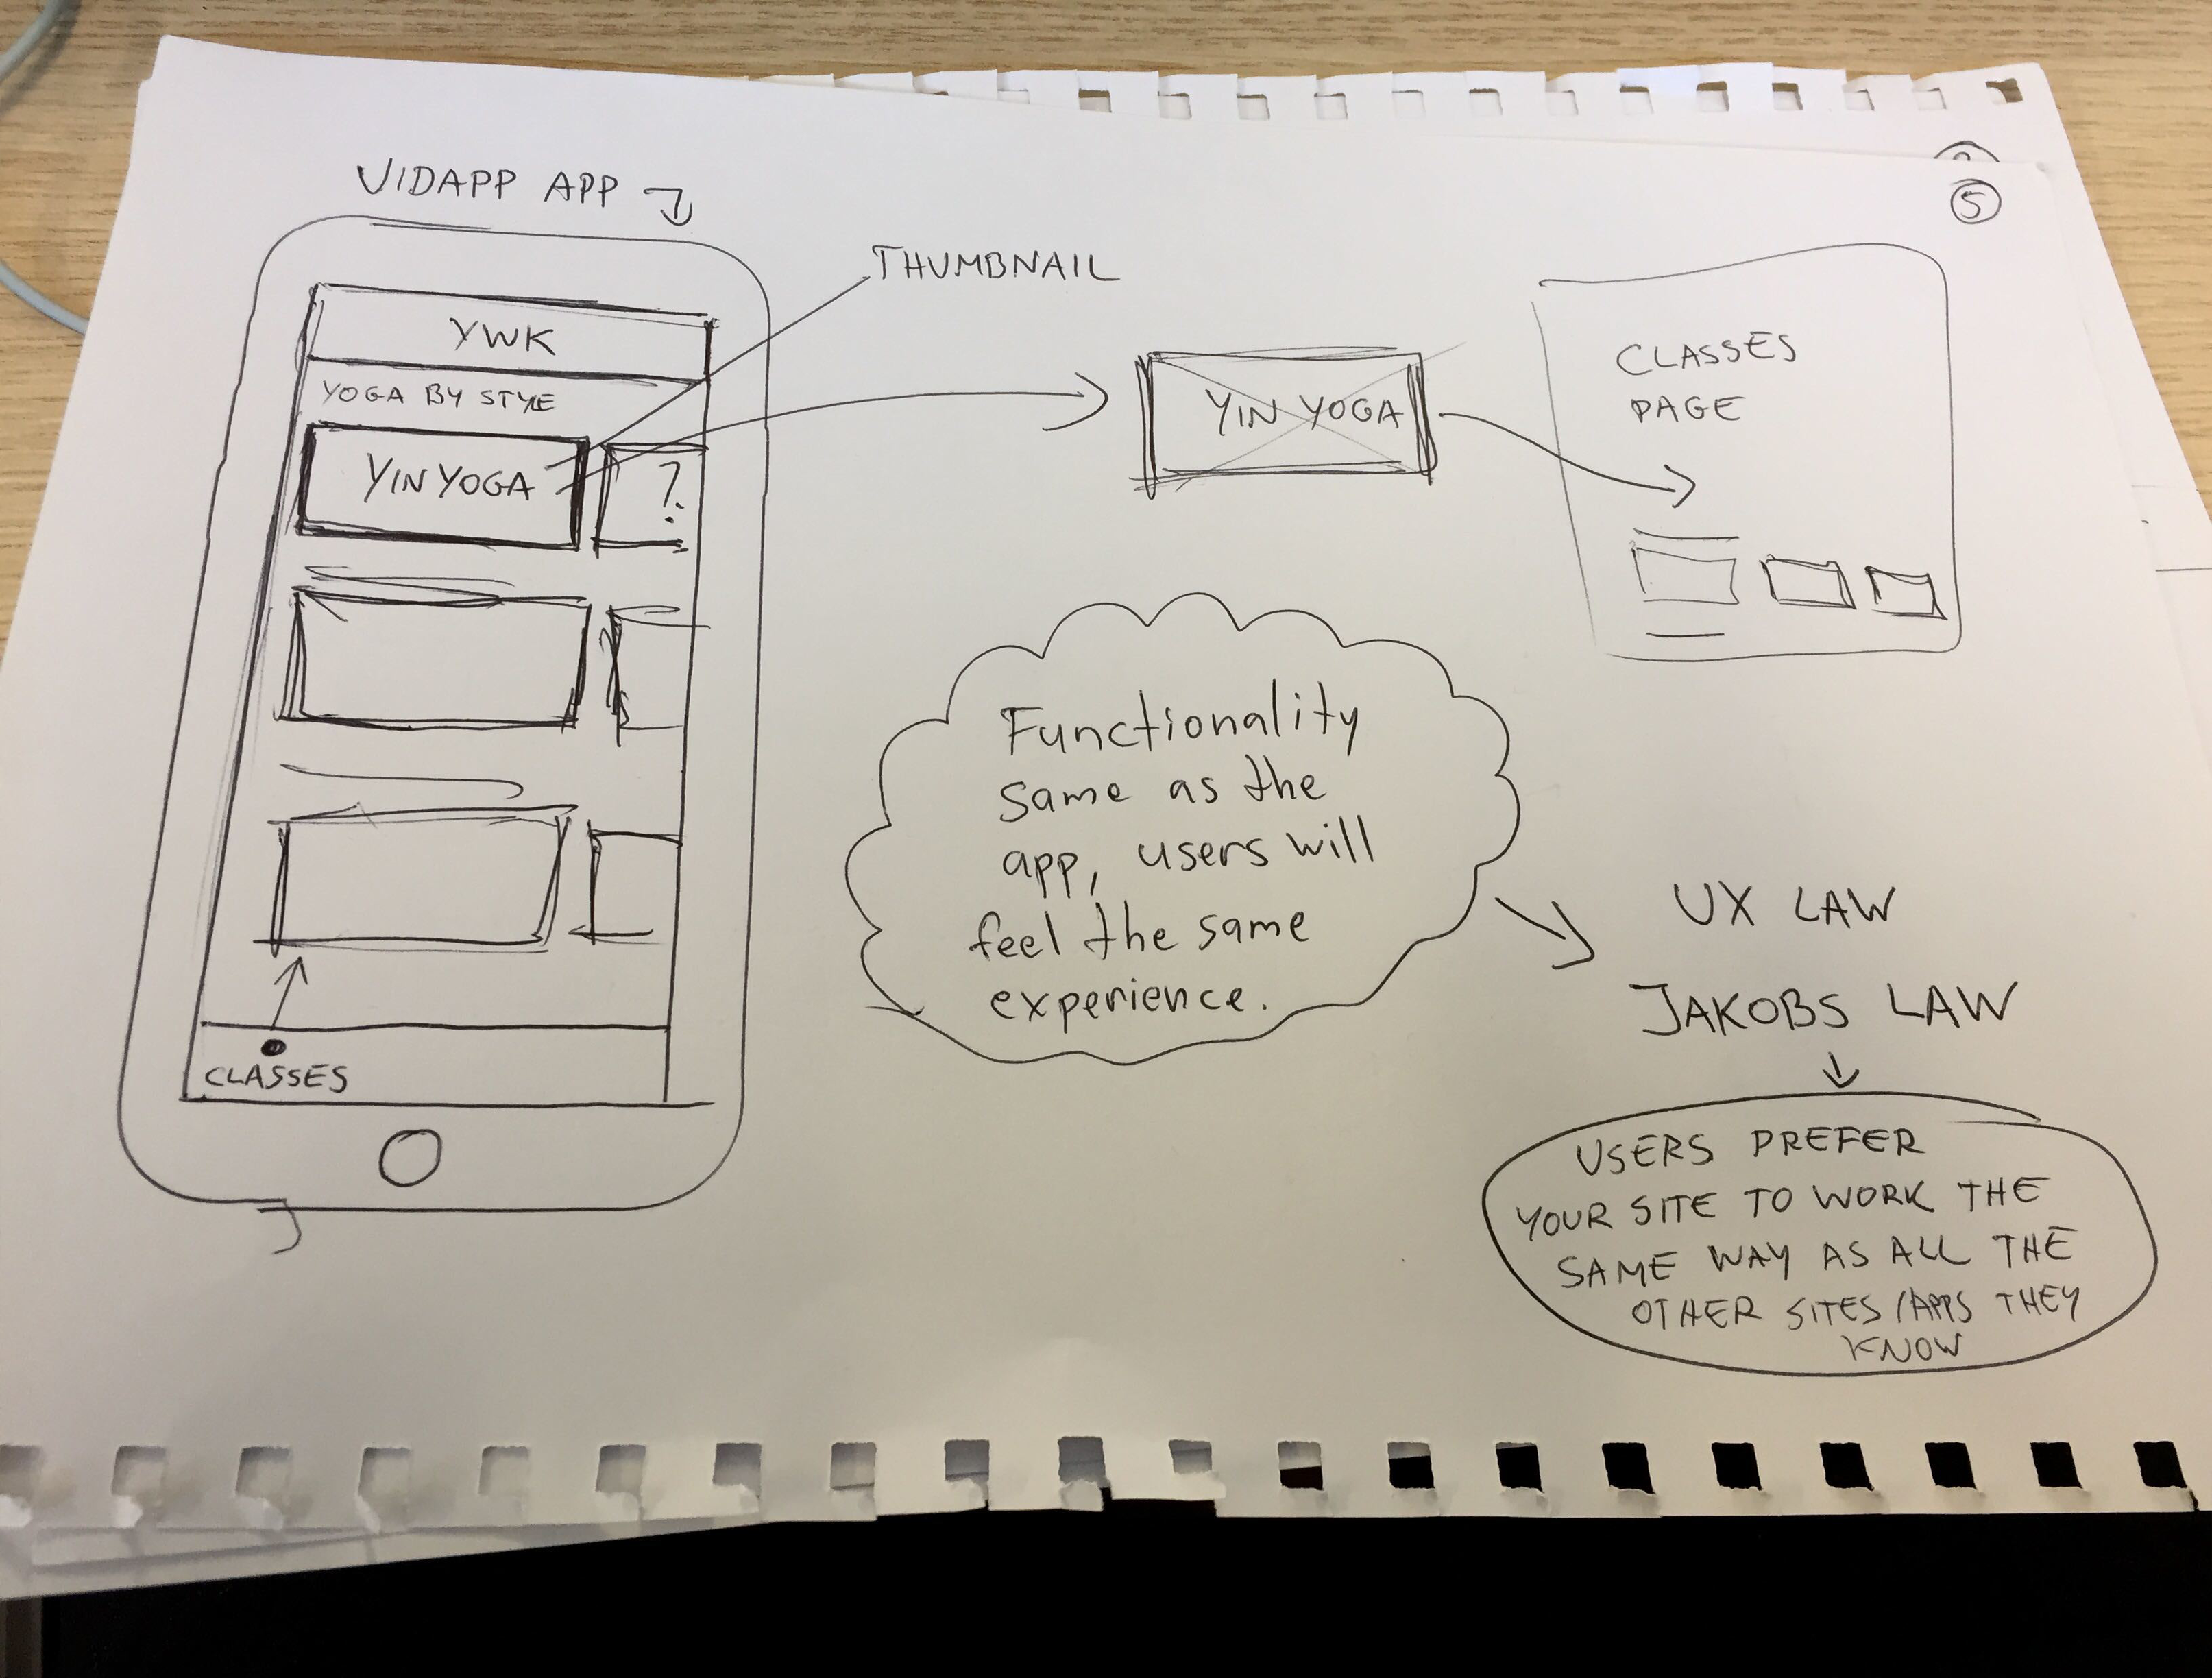 VIDAPP APP
5
THUMBNAIL
YWK
YOGA BY STYLE
YIN YOGA
?
YIN YOGA
CLASSES
PAGE
Functionality
same as the
app, users will
feel the same
experience.
UX LAW
JAKOBS LAW
CLASSES
USERS PREFER
YOUR SITE TO WORK THE
SAME WAY AS ALL THE
OTHER SITES/APPS THEY
KNOW